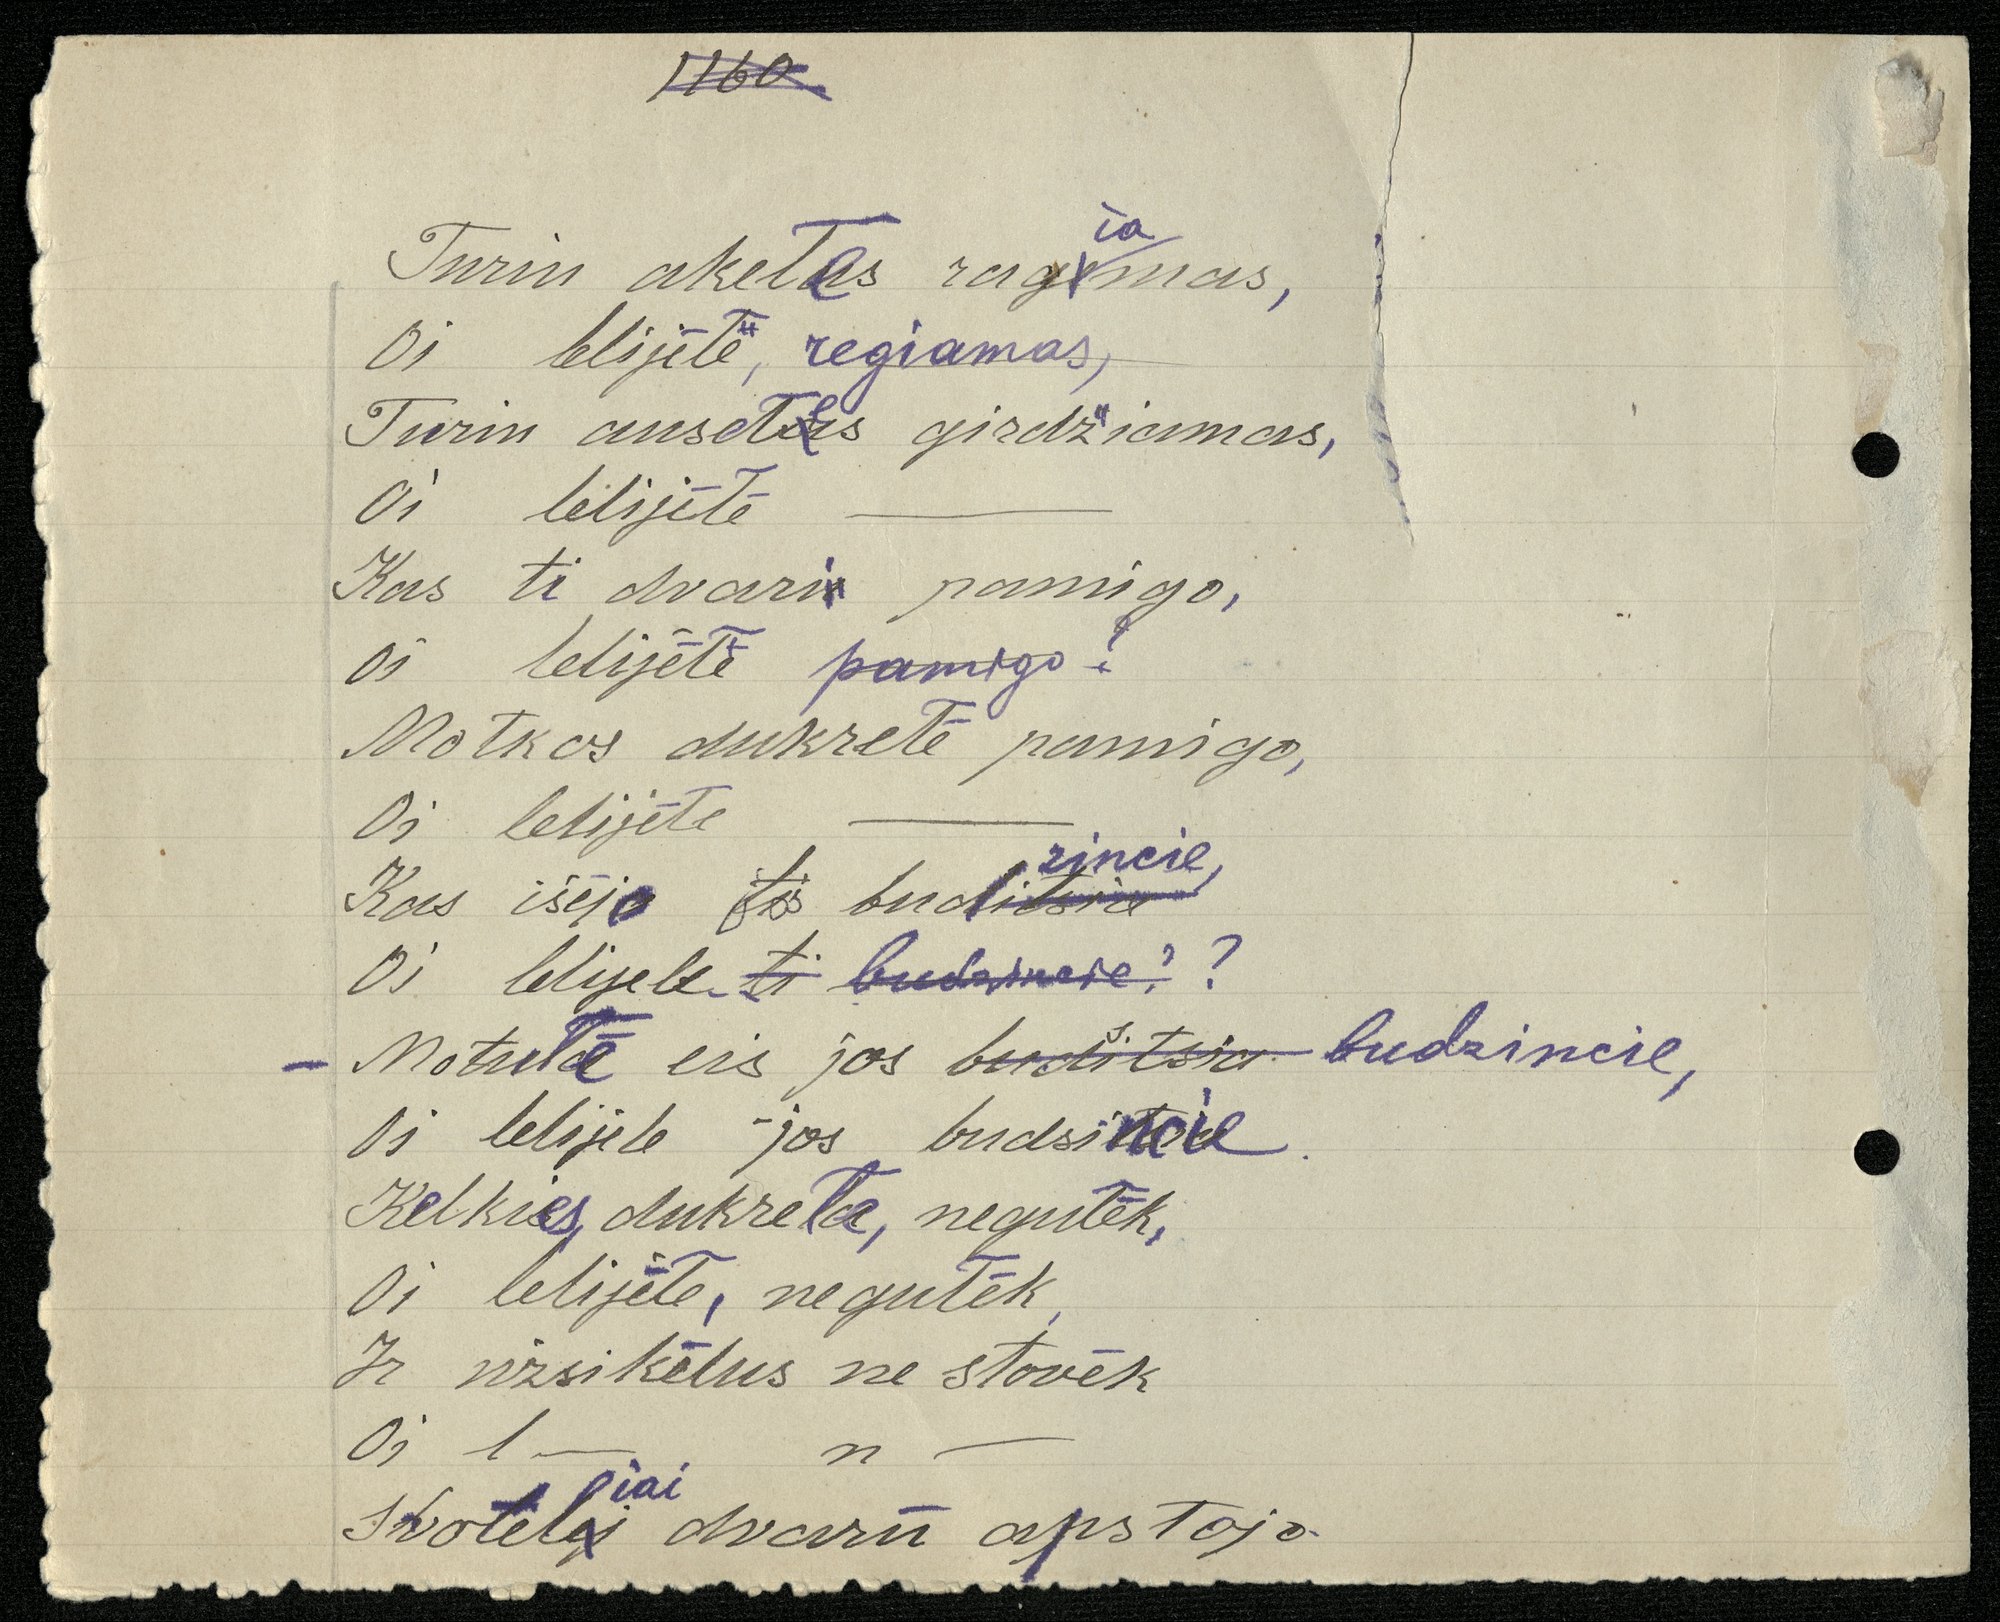 1160
Turiu aketes ragiamas,
Oi lelijėtė, regiamas,
Turiu ausetes girdžiamas,
Oi lelijėtė ———
Kas ti dvari pamigo,
Oi lelijėtė pamigo?
Motkos dukretė pamigo,
Oi lelijėtė ———
Kas išėjo budzincie,
Oi lelijele ti budzincie? ?
- Motutė eis jos budzincie,
Oi lelijele jos budzincie.
Kelkies, dukrete, negulėk,
Oi lelijėte, negulėk,
Ir užsikėlus ne stovėk
Oi l — n —
Svoteliai dvarū apstojo